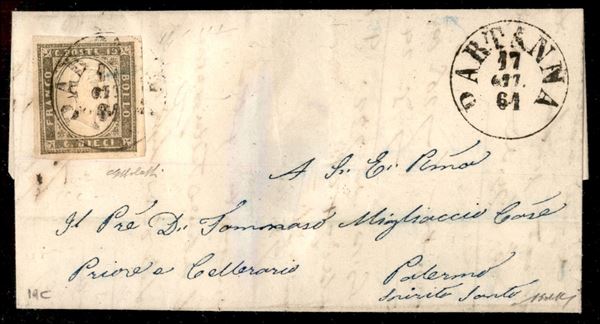 C. POSTE 10
FRANCO
BOLLO
C. DIECI
PARTANNA
17
OTT.
61
A Sr. Ec. Rma
Il Pré D. Tommaso Migliaccio Cose
Priore e Cellerario Palermo
Spirito Santo
14C